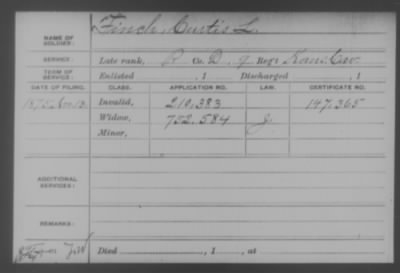 NAME OF SOLDIER: Finch, Curtis L.
SERVICE: Late rank, P Co. D, 9 Reg't Kans. Cav.
TERM OF SERVICE: Enlisted , 1 Discharged , 1
DATE OF FILING. CLASS. APPLICATION NO. LAW. CERTIFICATE NO.
Invalid, 210.383 147.365
Widow, 752.584 J.
Minor,
ADDITIONAL SERVICES:
REMARKS:
Died , 1 , at